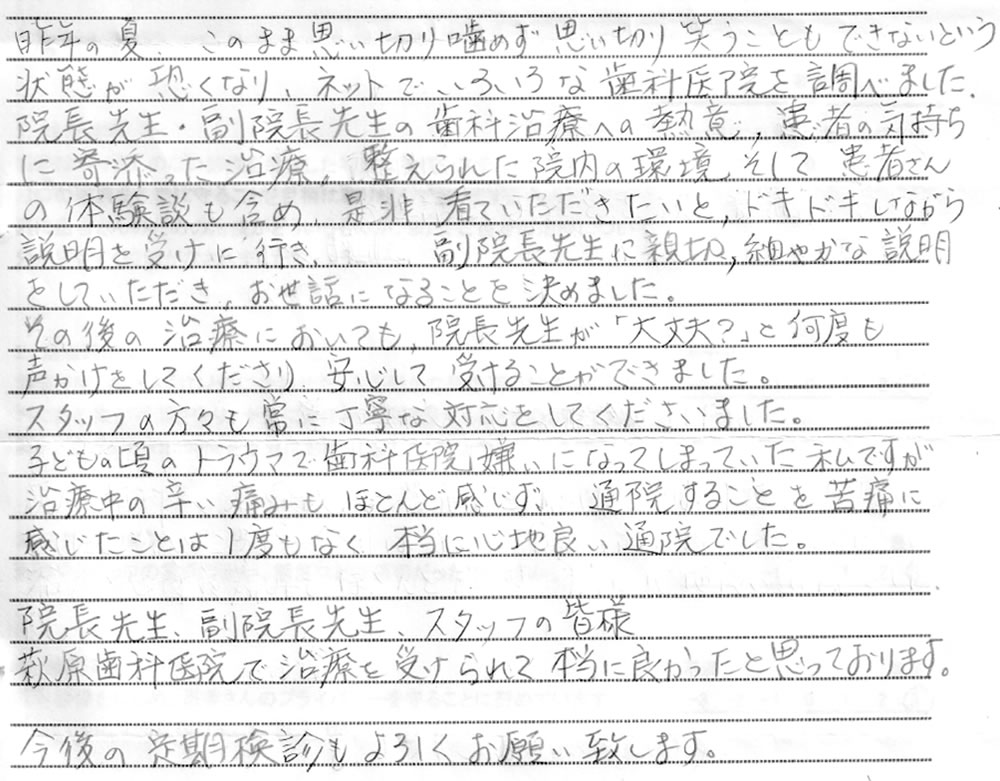 昨年の夏、このまま思い切り噛めず思い切り笑うこともできないという
状態が恐くなり、ネットでいろいろな歯科医院を調べました。
院長先生・副院長先生の歯科治療への熱意、患者の気持ち
に寄添った治療、整えられた院内の環境、そして患者さん
の体験談も含め、是非看ていただきたいと、ドキドキしながら
説明を受けに行き、副院長先生に親切、細やかな説明
をしていただき、お世話になることを決めました。
その後の治療においても、院長先生が「大丈夫?」と何度も
声かけをしてくださり、安心して受けることができました。
スタッフの方々も常に丁寧な対応をしてくださいました。
子どもの頃のトラウマで歯科医院嫌いになってしまっていた私ですが
治療中の辛い痛みもほとんど感じず、通院することを苦痛に
感じたことは1度もなく本当に心地良い通院でした。
院長先生、副院長先生、スタッフの皆様
萩原歯科医院で治療を受けられて本当に良かったと思っております。
今後の定期検診もよろしくお願い致します。